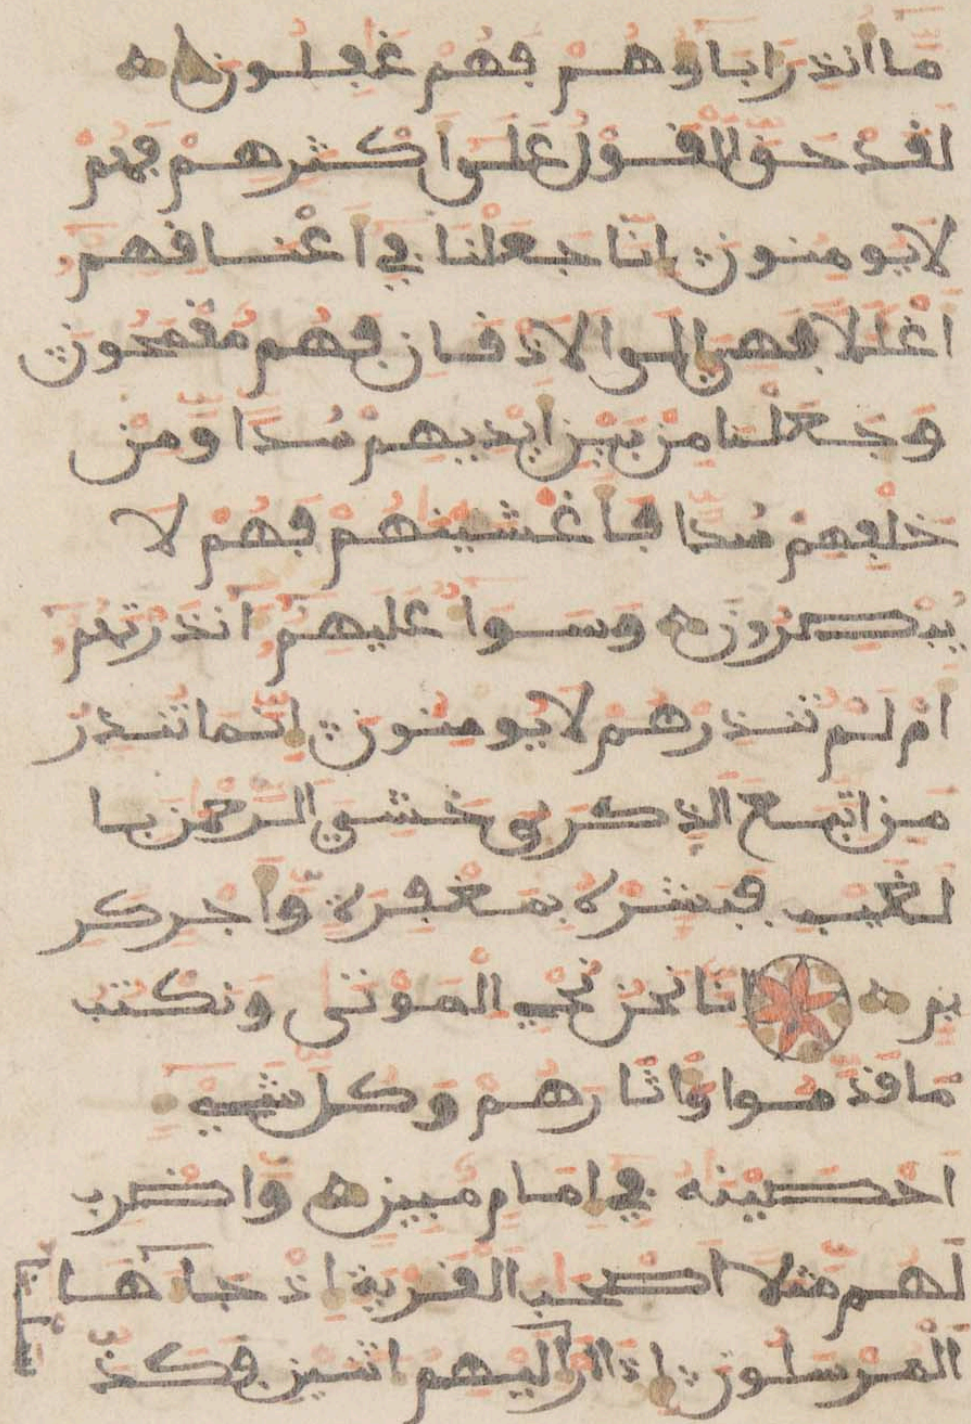 ما انذر اباوهم فهم غفلون ه
لقد حق القول على اكثرهم فهم
لا يومنون انا جعلنا في اعنـاقهم
اغللا فهي الى الاذقان فهم مقمحون
وجعلنا من بين ايديهم سدا ومن
خلفهم سدا فاغشينهم فهم لا
يبصرون ه وسوا عليهم انذرتهم
ام لم تنذرهم لا يومنون انما تنذر
من اتبع الذكر وخشي الرحمن با
لغيب فبشره بمغفرة واجر كر
يم ه انا نحن نحي الموتى ونكتب
ما قدموا واثارهم وكل شي
احصينه في امام مبين ه واضرب
لهم مثلا اصحب القرية اذ جاها
المرسلون اذ ارسلنا اليهم اثنين فكذ